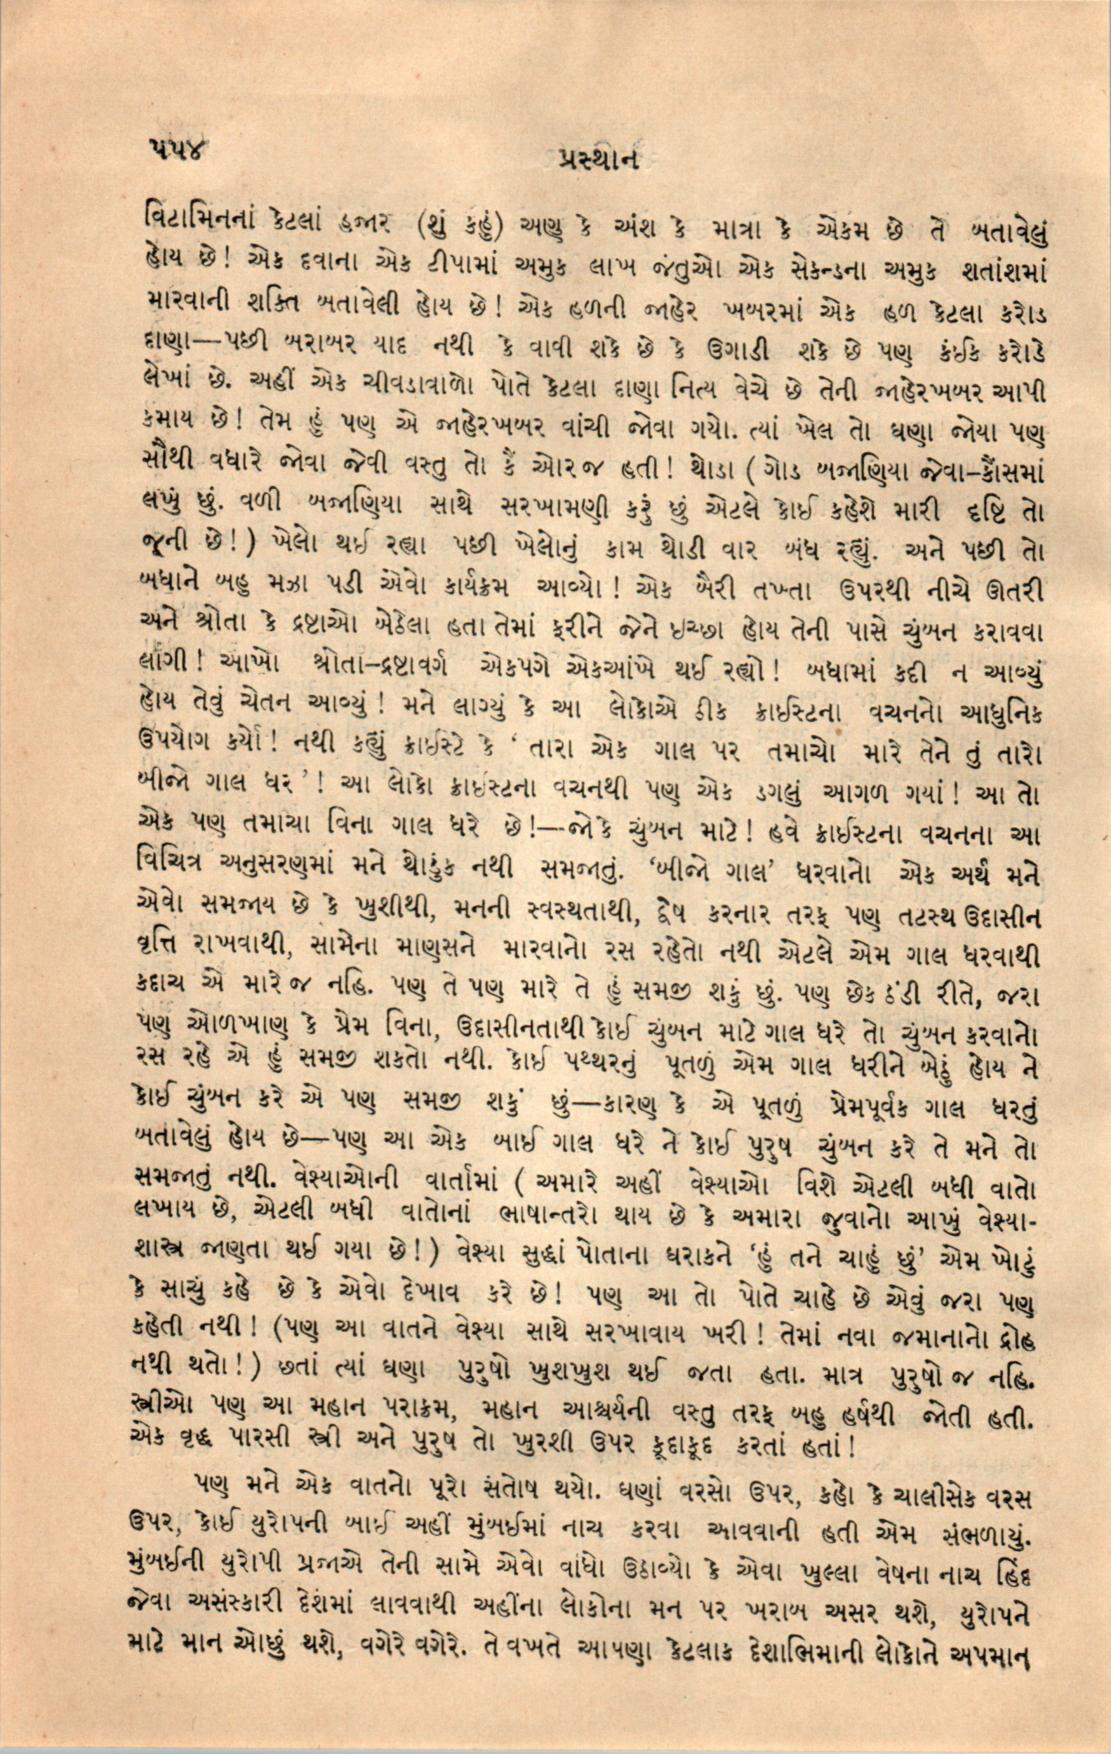 ૫૫૪
પ્રસ્થાન
વિટામિનનાં કેટલાં હજાર (શું કહું) અણુ કે અંશ કે માત્રા કે એકમ છે તે બતાવેલું
હોય છે! એક દવાના એક ટીપામાં અમુક લાખ જંતુઓ એક સેકન્ડના અમુક શતાંશમાં
મારવાની શક્તિ બતાવેલી હોય છે! એક હળની જાહેર ખબરમાં એક હળ કેટલા કરોડ
દાણા—પછી બરાબર યાદ નથી કે વાવી શકે છે કે ઉગાડી શકે છે પણ કંઈક કરોડે
લેખાં છે. અહીં એક ચીવડાવાળો પોતે કેટલા દાણા નિત્ય વેચે છે તેની જાહેરખબર આપી
કમાય છે! તેમ હું પણ એ જાહેરખબર વાંચી જોવા ગયો. ત્યાં ખેલ તો ઘણા જોયા પણ
સૌથી વધારે જોવા જેવી વસ્તુ તો કૈં ઓરજ હતી! થોડા (ગોડ બજાણિયા જેવા–કૌંસમાં
લખું છું. વળી બજાણિયા સાથે સરખામણી કરું છું એટલે કોઈ કહેશે મારી દૃષ્ટિ તો
જૂની છે!) ખેલો થઈ રહ્યા પછી ખેલોનું કામ થોડી વાર બંધ રહ્યું. અને પછી તો
બધાને બહુ મઝા પડી એવો કાર્યક્રમ આવ્યો! એક બૈરી તખ્તા ઉપરથી નીચે ઊતરી
અને શ્રોતા કે દ્રષ્ટાઓ બેઠેલા હતા તેમાં ફરીને જેને ઇચ્છા હોય તેની પાસે ચુંબન કરાવવા
લાગી! આખો શ્રોતા–દ્રષ્ટાવર્ગ એકપગે એકઆંખે થઈ રહ્યો! બધામાં કદી ન આવ્યું
હોય તેવું ચેતન આવ્યું! મને લાગ્યું કે આ લોકોએ ઠીક ક્રાઈસ્ટના વચનનો આધુનિક
ઉપયોગ કર્યો! નથી કહ્યું ક્રાઈસ્ટે કે ‘તારા એક ગાલ પર તમાચો મારે તેને તું તારો
બીજો ગાલ ધર’! આ લોકો ક્રાઇસ્ટના વચનથી પણ એક ડગલું આગળ ગયાં! આ તો
એક પણ તમાચા વિના ગાલ ધરે છે!—જોકે ચુંબન માટે! હવે ક્રાઈસ્ટના વચનના આ
વિચિત્ર અનુસરણમાં મને થોડુંક નથી સમજાતું. ‘બીજો ગાલ’ ધરવાનો એક અર્થ મને
એવો સમજાય છે કે ખુશીથી, મનની સ્વસ્થતાથી, દ્વેષ કરનાર તરફ પણ તટસ્થ ઉદાસીન
વૃત્તિ રાખવાથી, સામેના માણસને મારવાનો રસ રહેતો નથી એટલે એમ ગાલ ધરવાથી
કદાચ એ મારેજ નહિ. પણ તે પણ મારે તે હું સમજી શકું છું. પણ છેક ઠંડી રીતે, જરા
પણ ઓળખાણ કે પ્રેમ વિના, ઉદાસીનતાથી કોઈ ચુંબન માટે ગાલ ધરે તો ચુંબન કરવાનો
રસ રહે એ હું સમજી શકતો નથી. કોઈ પથ્થરનું પૂતળું એમ ગાલ ધરીને બેઠું હોય ને
કોઈ ચુંબન કરે એ પણ સમજી શકું છું—કારણ કે એ પૂતળું પ્રેમપૂર્વક ગાલ ધરતું
બતાવેલું હોય છે—પણ આ એક બાઈ ગાલ ધરે ને કોઈ પુરુષ ચુંબન કરે તે મને તો
સમજાતું નથી. વેશ્યાઓની વાર્તામાં (અમારે અહીં વેશ્યાઓ વિશે એટલી બધી વાતો
લખાય છે, એટલી બધી વાતોનાં ભાષાન્તરો થાય છે કે અમારા જુવાનો આખું વેશ્યા-
શાસ્ત્ર જાણતા થઈ ગયા છે!) વેશ્યા સુદ્ધાં પોતાના ઘરાકને ‘હું તને ચાહું છું’ એમ ખોટું
કે સાચું કહે છે કે એવો દેખાવ કરે છે! પણ આ તો પોતે ચાહે છે એવું જરા પણ
કહેતી નથી! (પણ આ વાતને વેશ્યા સાથે સરખાવાય ખરી! તેમાં નવા જમાનાનો દ્રોહ
નથી થતો!) છતાં ત્યાં ઘણા પુરુષો ખુશખુશ થઈ જતા હતા. માત્ર પુરુષો જ નહિ.
સ્ત્રીઓ પણ આ મહાન પરાક્રમ, મહાન આશ્ચર્યની વસ્તુ તરફ બહુ હર્ષથી જોતી હતી.
એક વૃદ્ધ પારસી સ્ત્રી અને પુરુષ તો ખુરશી ઉપર કૂદાકૂદ કરતાં હતાં!
પણ મને એક વાતનો પૂરો સંતોષ થયો. ઘણાં વરસો ઉપર, કહો કે ચાલીસેક વરસ
ઉપર, કોઈ યુરોપની બાઈ અહીં મુંબઈમાં નાચ કરવા આવવાની હતી એમ સંભળાયું.
મુંબઈની યુરોપી પ્રજાએ તેની સામે એવો વાંધો ઉઠાવ્યો કે એવા ખુલ્લા વેષના નાચ હિંદ
જેવા અસંસ્કારી દેશમાં લાવવાથી અહીંના લોકોના મન પર ખરાબ અસર થશે, યુરોપને
માટે માન ઓછું થશે, વગેરે વગેરે. તે વખતે આપણા કેટલાક દેશાભિમાની લોકોને અપમાન